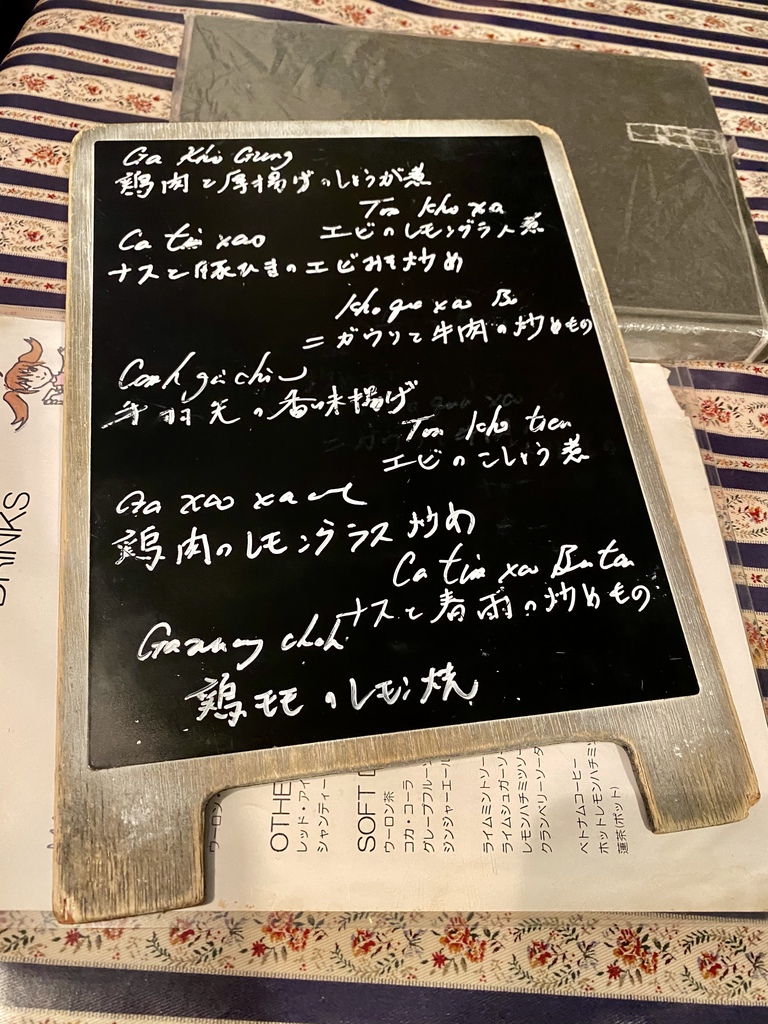 Ga Kho Gung
鶏肉と厚揚げのしょうが煮
Tom kho xa
エビのレモングラス煮
Ca tim xao
ナスと豚ひきのエビみそ炒め
kho qua xao Bo
ニガウリと牛肉の炒めもの
Canh ga chien
手羽先の香味揚げ
Tom kho tieu
エビのこしょう煮
Ga xao xa
鶏肉のレモングラス炒め
Ca tim xao
ナスと春雨の炒めもの
chanh
鶏モモのレモン焼
DRINKS
ウーロン
OTHE
レッド・アイ
シャンティー
SOFT D
ウーロン茶
コカ・コーラ
グレープフルー
ジンジャーエール
ライムミントソー
ライムシュガーソー
レモンハチミツソー
クランベリーソーダ
ベトナムコーヒー
ホットレモンハチミ
蓮茶(ポット)